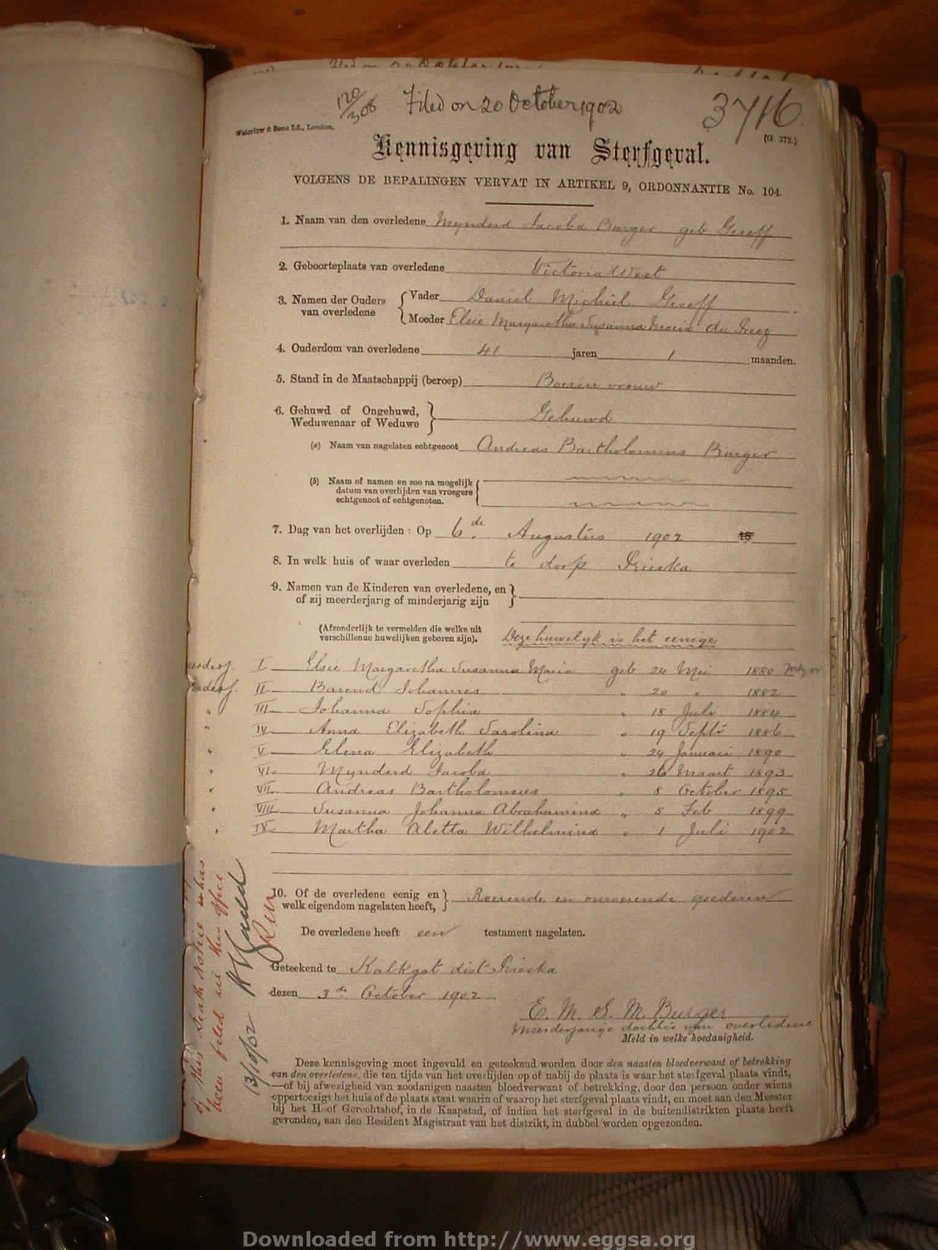 120/306 Filed on 20 October 1902 3716
Waterlow & Sons Ld., London. (G 372.)
Kennisgeving van Sterfgeval.
VOLGENS DE BEPALINGEN VERVAT IN ARTIKEL 9, ORDONNANTIE No. 104
1. Naam van den overledene Mynderd Jacoba Burger geb Greeff
2. Geboorteplaats van overledene Victoria West
3. Namen der Ouders van overledene { Vader Daniel Michiel Greeff
Moeder Elsie Margaretha Susanna Maria du Preez
4. Ouderdom van overledene 41 jaren 1 maanden.
5. Stand in de Maatschappij (beroep) Boeren vrouw
6. Gehuwd of Ongehuwd, Weduwenaar of Weduwe } Gehuwd
(a) Naam van nagelaten echtgenoot Andreas Bartholomeus Burger
(b) Naam of namen en zoo na mogelijk
datum van overlijden van vroegere
echtgenoot of echtgenoten.
7. Dag van het overlijden : Op 6de Augustus 1902 18
8. In welk huis of waar overleden te dorp Prieska
9. Namen van de Kinderen van overledene, en
of zij meerderjarig of minderjarig zijn
(Afzonderlijk te vermelden die welke uit
verschillende huwelijken geboren zijn). Deze huwelyk is het eenige
I Elsie Margaretha Susanna Maria geb 24 Mei 1880
II Barend Johannes " 20 " 1882
" III Johanna Sophia " 18 Juli 1884
" IV Anna Elizabeth Carolina " 19 Septr 1886
" V Elena Elizabeth " 24 Januari 1890
" VI Mynderd Jacoba " 26 Maart 1893
" VII Andreas Bartholomeus " 8 October 1895
" VIII Susanna Johanna Abrahamina " 5 Feb 1899
" IX Martha Aletta Wilhelmina " 1 Juli 1902
10. Of de overledene eenig en
welk eigendom nagelaten heeft, } Roerende en onroerende goederen
De overledene heeft een testament nagelaten.
Geteekend te Kalkgat dist Prieska
dezen 3de October 1902
E. M. S. M. Burger
Meerderjarige dochter van overledene
Meld in welke hoedanigheid.
Deze kennisgeving moet ingevuld en geteekend worden door den naasten bloedverwant of betrekking
van den overledene, die ten tijde van het overlijden op of nabij de plaats is waar het sterfgeval plaats vindt,
—of bij afwezigheid van zoodanigen naasten bloedverwant of betrekking, door den persoon onder wiens
oppertoezigt het huis of de plaats staat waarin of waarop het sterfgeval plaats vindt, en moet aan den Meester
bij het Hoof Gerechtshof, in de Kaapstad, of indien het sterfgeval in de buitendistrikten plaats heeft
gevonden, aan den Resident Magistraat van het distrikt, in dubbel worden opgezonden.
this Death Notice has
been filed in this Office
13/10/02
Downloaded from http://www.eggsa.org